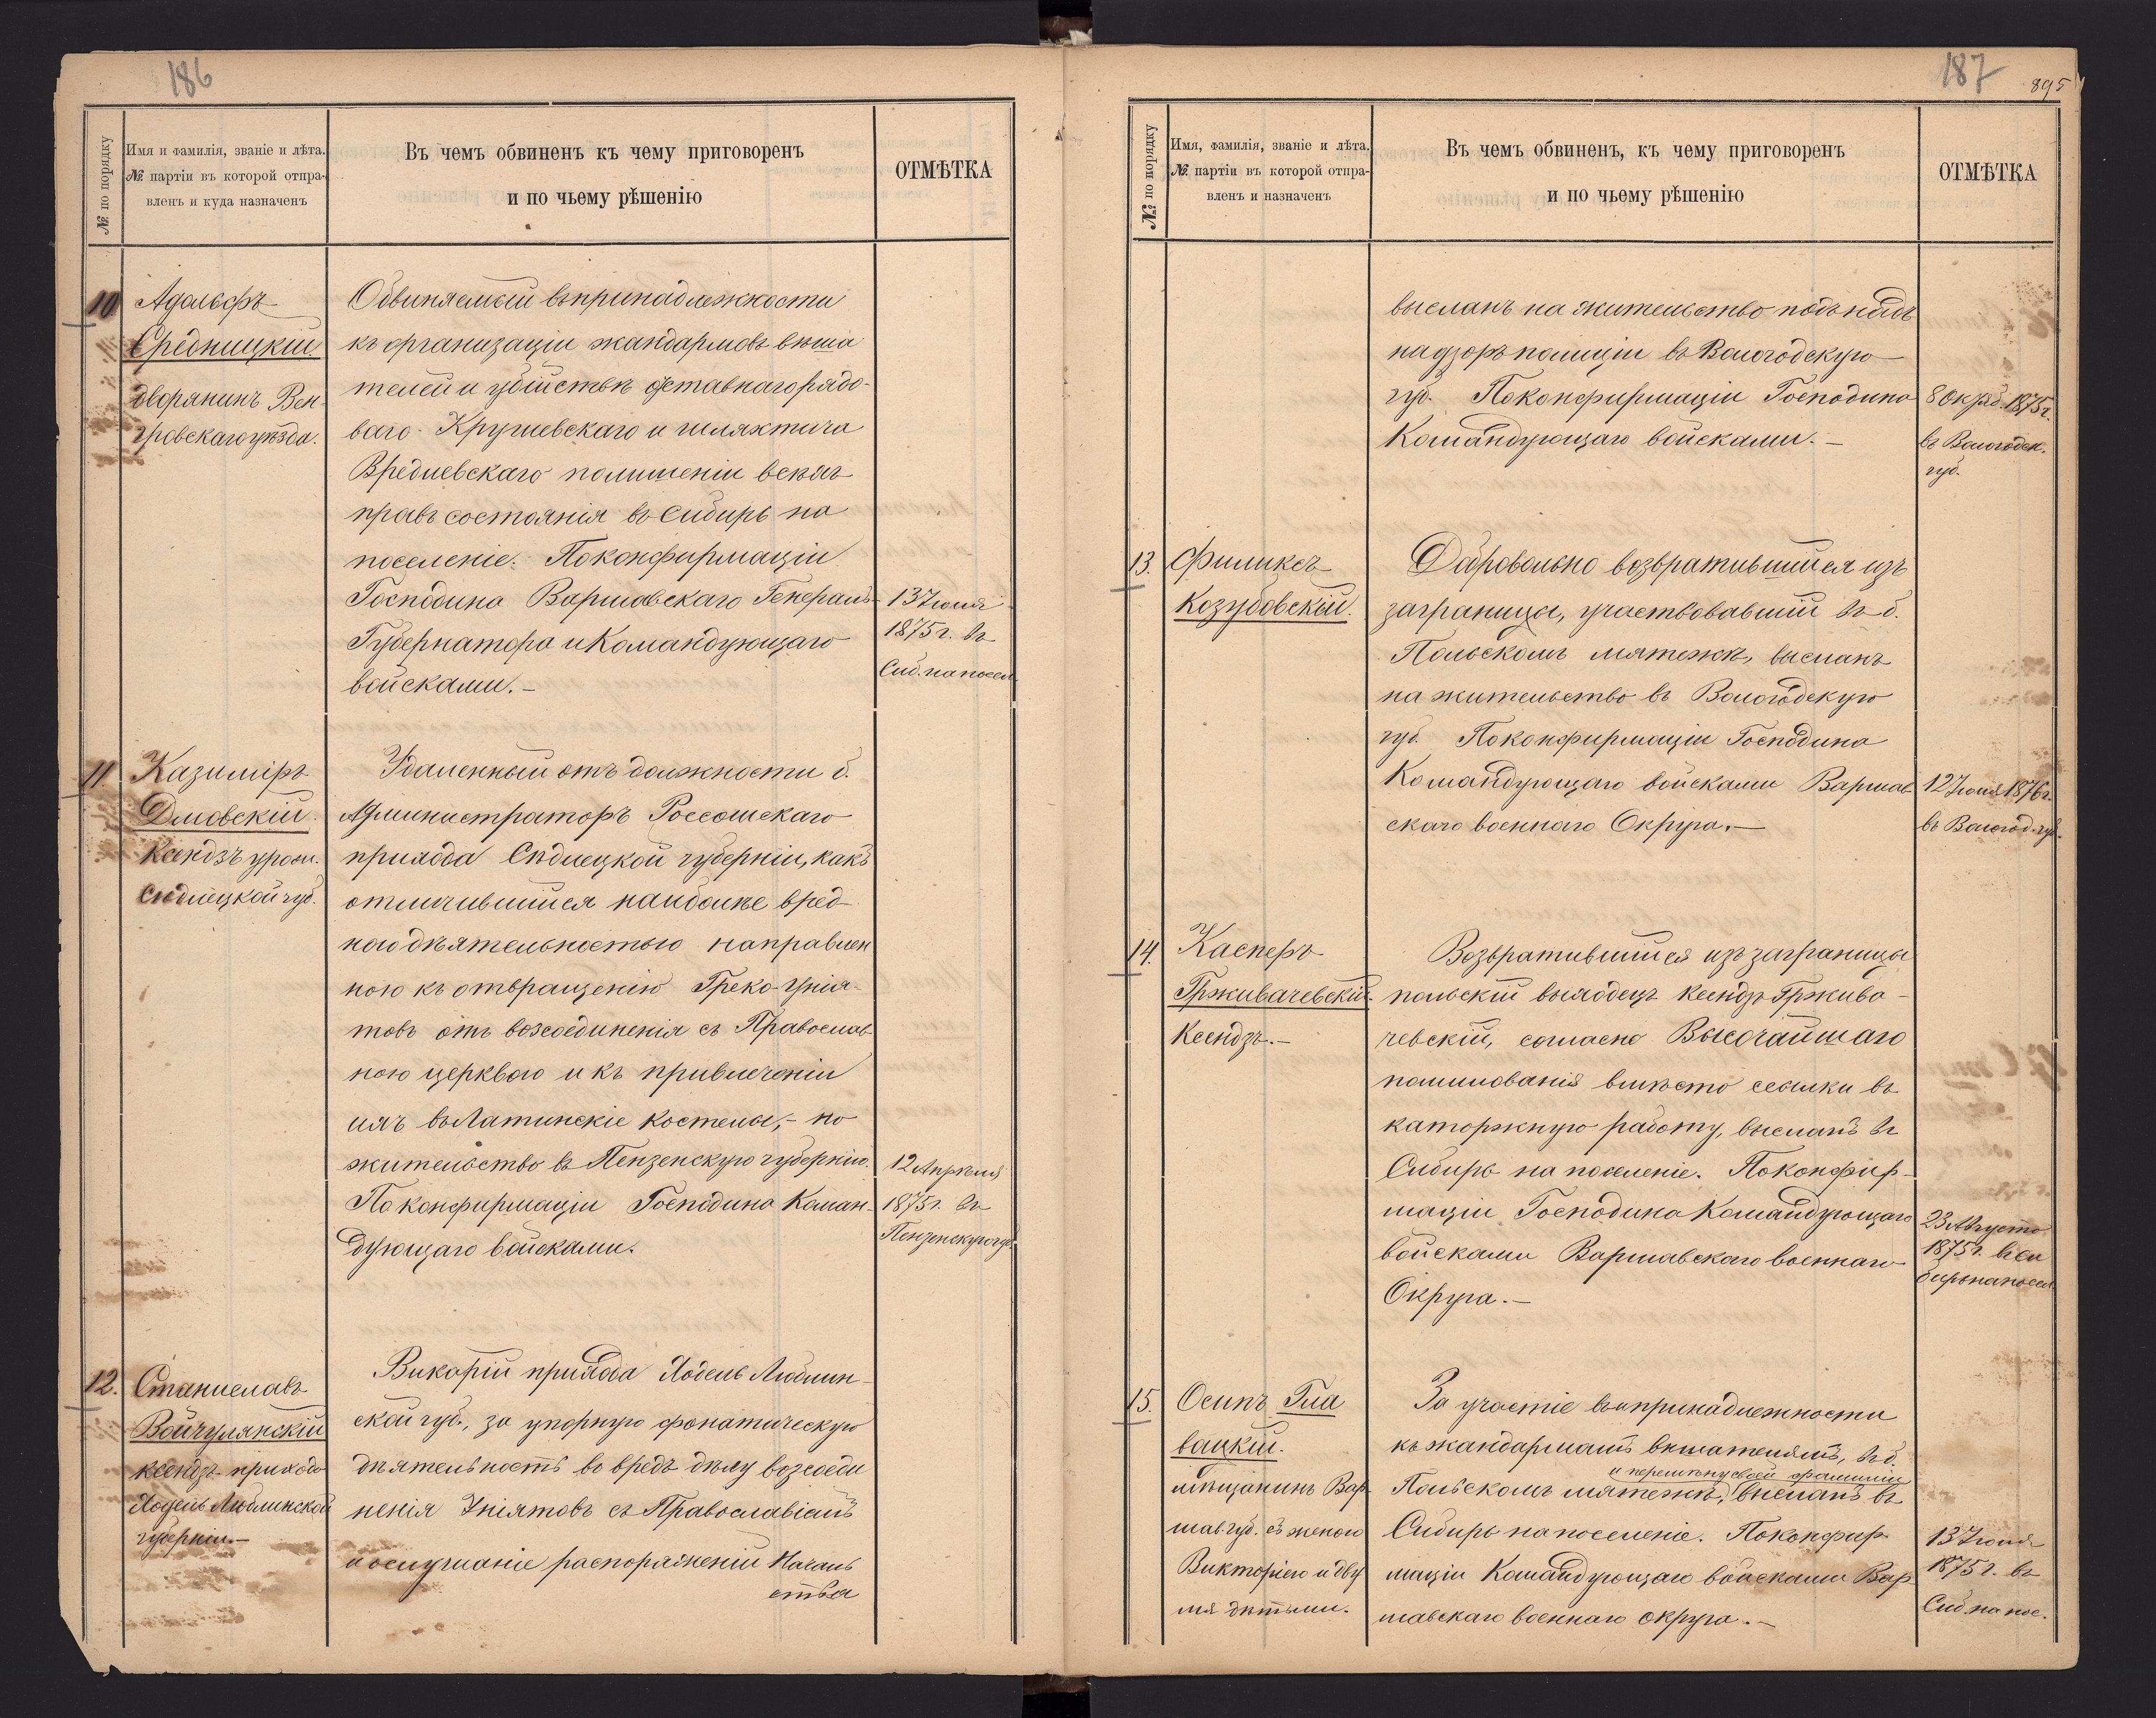 186
№ по порядку
Имя и фамилія, званіе и лѣта.
№ партіи въ которой отпра-
вленъ и куда назначенъ
Въ чемъ обвиненъ къ чему приговоренъ
и по чьему рѣшенію
ОТМѢТКА
10
Адольфъ
Средницкій.
дворянинъ Вен-
гровскаго уѣзда.
Обвиняемый въ принадлежности
къ организаціи жандармовъ вѣша
телей и убійствѣ отставнаго рядо-
ваго Кругиевскаго и шляхтича
Вредлевскаго по лишеніи всѣхъ
правъ состоянія въ Сибирь на
поселеніе. По конфирмаціи
Господина Варшавскаго Генералъ-
Губернатора и Командующаго
войсками.-
13 Іюня
1875 г. въ
Сиб. на посел.
11.
Казиміръ
Дмовскій.
Ксендзъ урож.
Сѣдлецкой губ.
Удаленный отъ должности б.
Администраторъ Россошскаго
прихода Сѣдлецкой губерніи, какъ
отличившійся наиболѣе вред-
ною дѣятельностью направлен
ною къ отвращенію Греко-Унія-
товъ отъ возсоединенія съ Православ-
ною церквою и къ привлеченію
ихъ въ Латинскіе костелы,- на
жительство въ Пензенскую губернію.
По конфирмаціи Господина Коман-
дующаго войсками.
12 Апрѣля
1875 г. въ
Пензенскую губ.
12.
Станиславъ
Войчулянскій
ксендзъ прихода
Ходель Люблинской
губерніи.-
Викарій прихода Ходель Люблин-
ской губ., за упорную фанатическую
дѣятельность во вредъ дѣлу возсоеди
ненія Уніятовъ съ Православіемъ
и ослушаніе распоряженій Началь
ства
187
895
№ по порядку
Имя, фамилія, званіе и лѣта.
№ партіи въ которой отпра-
вленъ и назначенъ
Въ чемъ обвиненъ, къ чему приговоренъ
и по чьему рѣшенію
ОТМѢТКА
высланъ на жительство подъ надъ
надзоръ полиціи въ Вологодскую
губ. По конфирмаціи Господина
Командующаго войсками.-
8 Октяб. 1875 г.
въ Вологодск.
губ.
13.
Филиксъ
Козубовскій.
Добровольно возвратившійся изъ
заграницы, участвовавшій въ б.
Польскомъ мятежѣ, высланъ
на жительство въ Вологодскую
губ. По конфирмаціи Господина
Командующаго войсками Варшав
скаго военнаго Округа.-
12 Іюня 1876 г.
въ Вологод. губ.
14.
Касперъ
Грживачевскій.
Ксендзъ.-
Возвратившійся изъ заграницы
польскій выходецъ ксендзъ Гржива-
чевскій, согласно Высочайшаго
помилованія вмѣсто ссылки въ
каторжную работу, высланъ въ
Сибирь на поселеніе. По конфир-
маціи Господина Командующаго
войсками Варшавскаго военнаго
Округа.-
23 Августа
1875 г. въ Си
бирь на посел.
15.
Осипъ Гла
вацкій.
мѣщанинъ Вар-
шав. губ. съ женою
Викторіею и дву
мя дѣтьми.
За участіе въ принадлежности
къ жандармамъ вѣшателямъ, въ б.
и перемѣну своей фамиліи
Польскомъ мятежѣ, высланъ въ
Сибирь на поселеніе. По конфир-
маціи Командующаго войсками Вар
шавскаго военнаго округа.-
13 Іюня
1875 г. въ
Сиб. на пос.